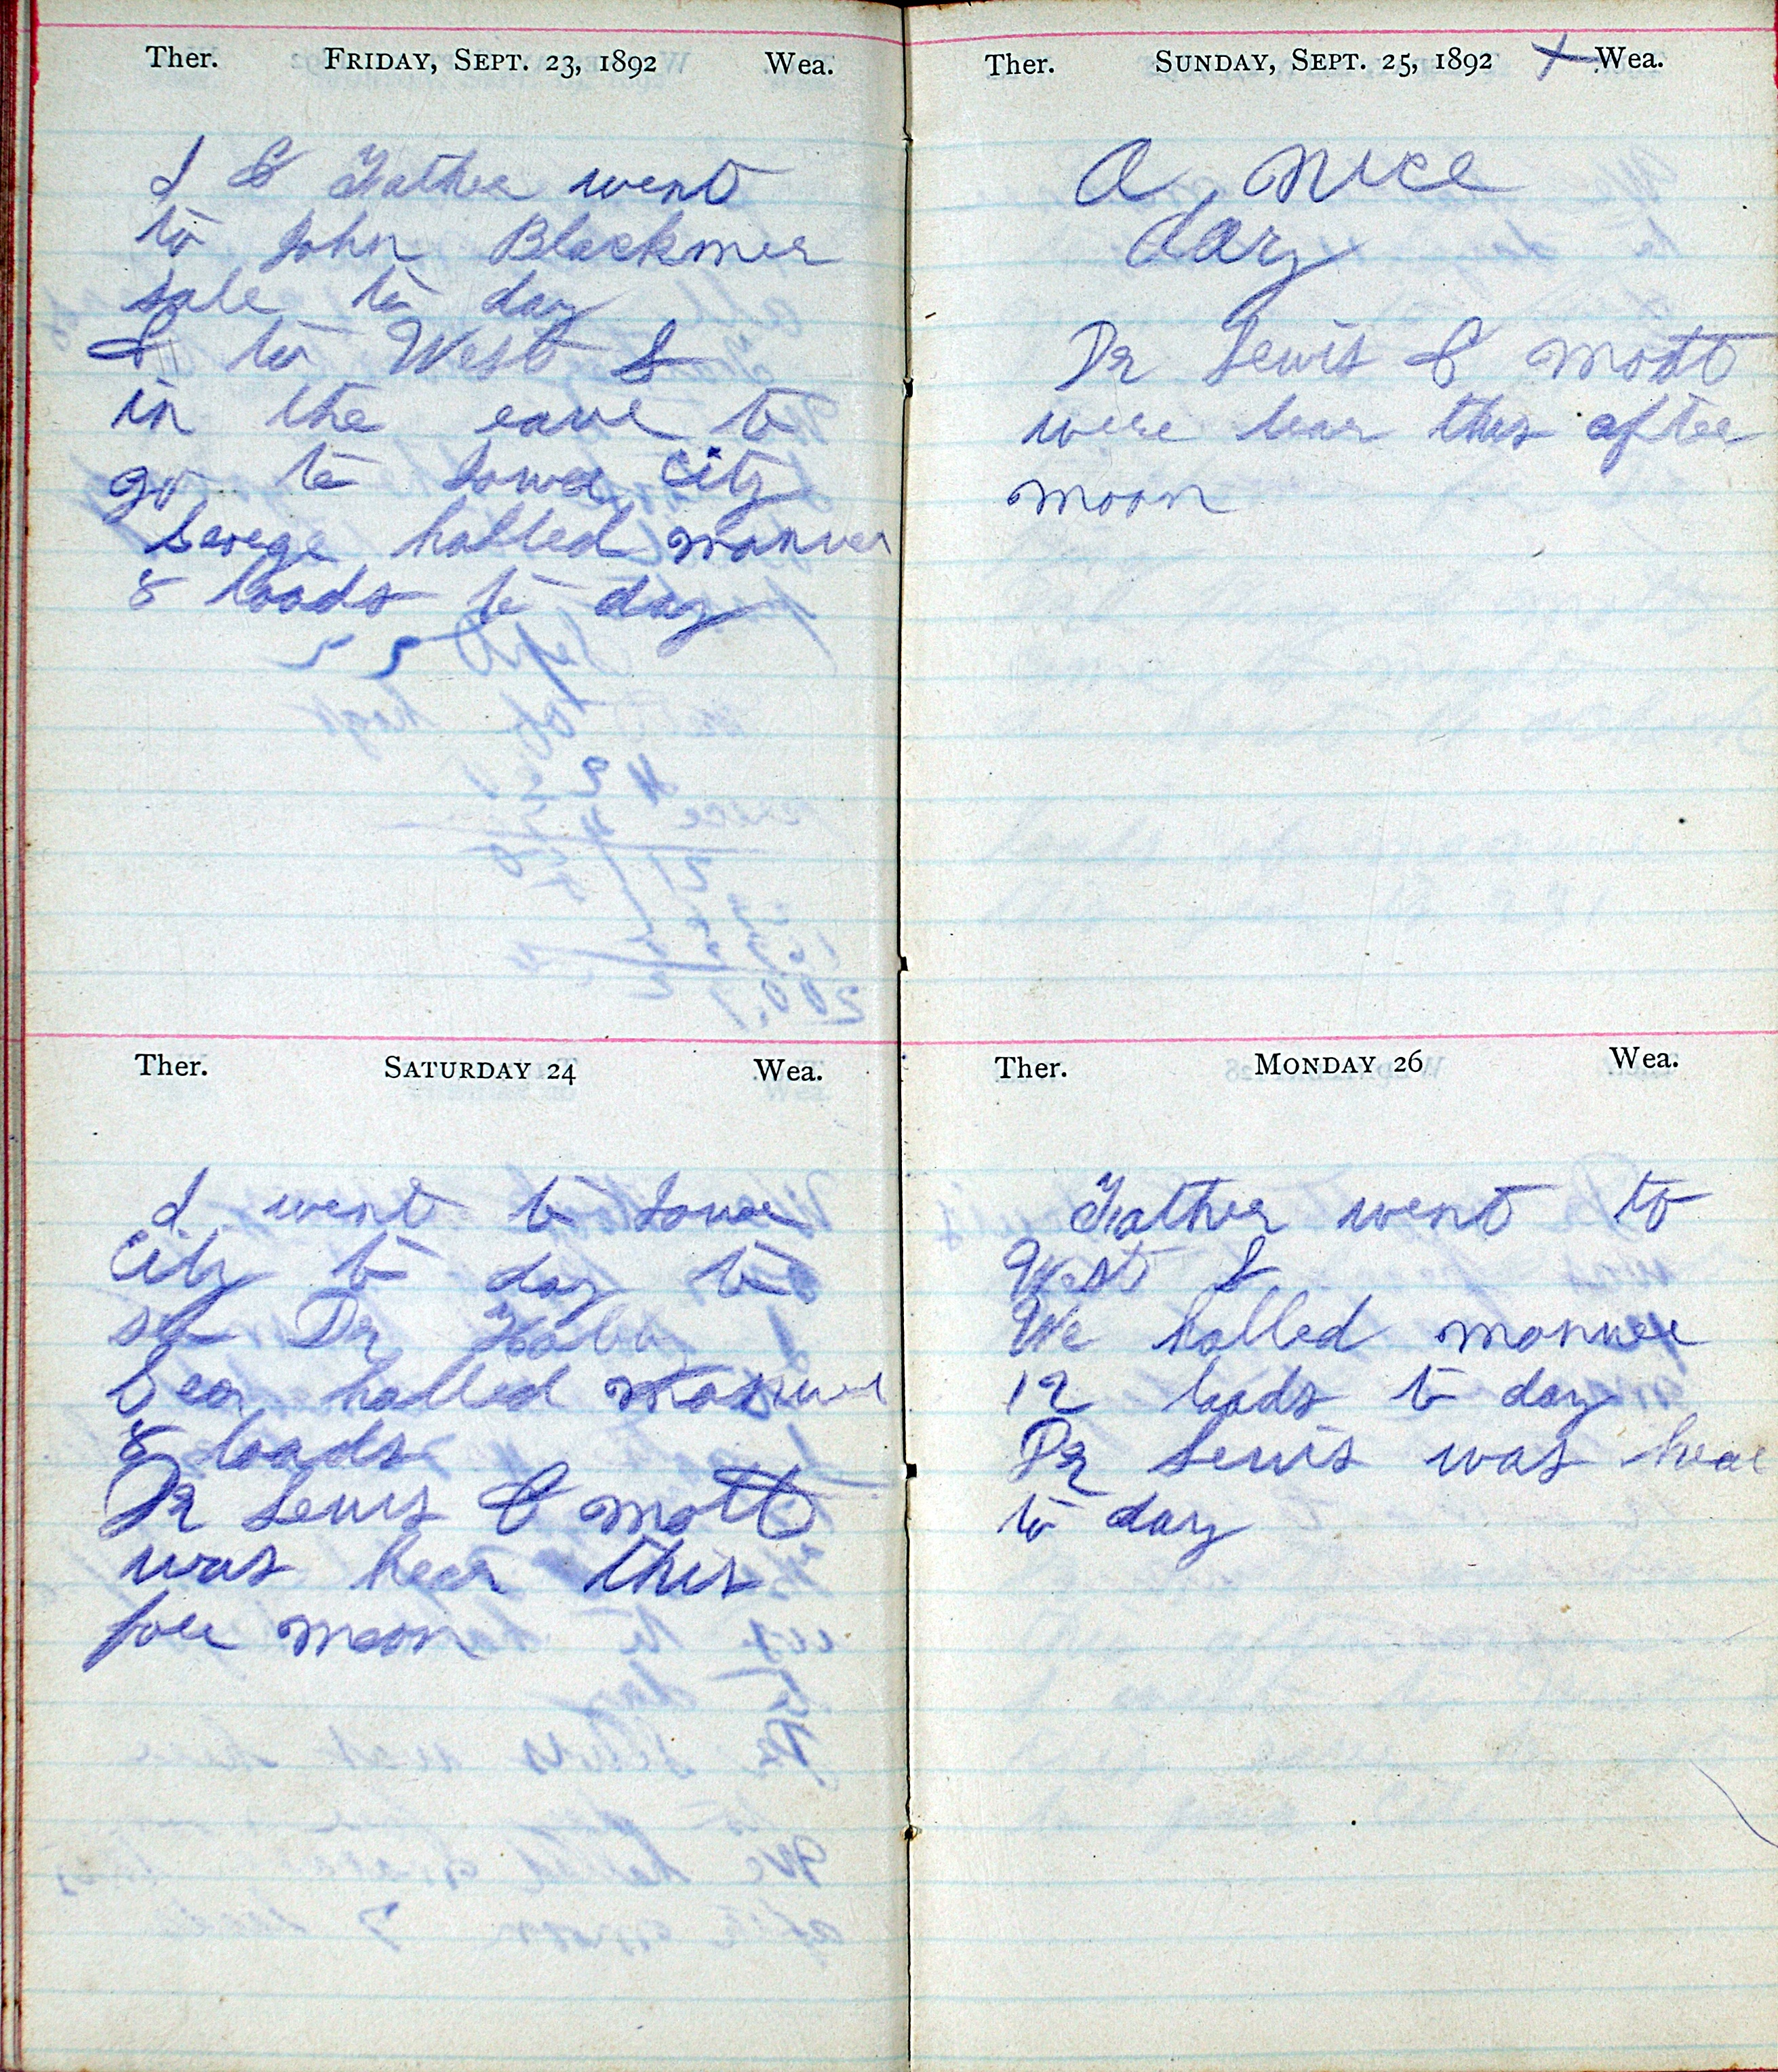 Ther. FRIDAY, SEPT. 23, 1892 Wea.
I & Father went
to John Blackmer
sale to day
& to West L
in the eave to
go to Iowa City
halled manuer
8 loads to day
Ther. SATURDAY 24 Wea.
I went to Iowa
City to day to
see Dr
halled manuer
8 loads
Dr Lewis & Mott
was hear this
fore noon
Ther. SUNDAY, SEPT. 25, 1892 X Wea.
A nice
day
Dr Lewis & Mott
were hear this after
noon
Ther. MONDAY 26 Wea.
Father went to
West L
We halled manuer
12 loads to day
Dr Lewis was hear
to day